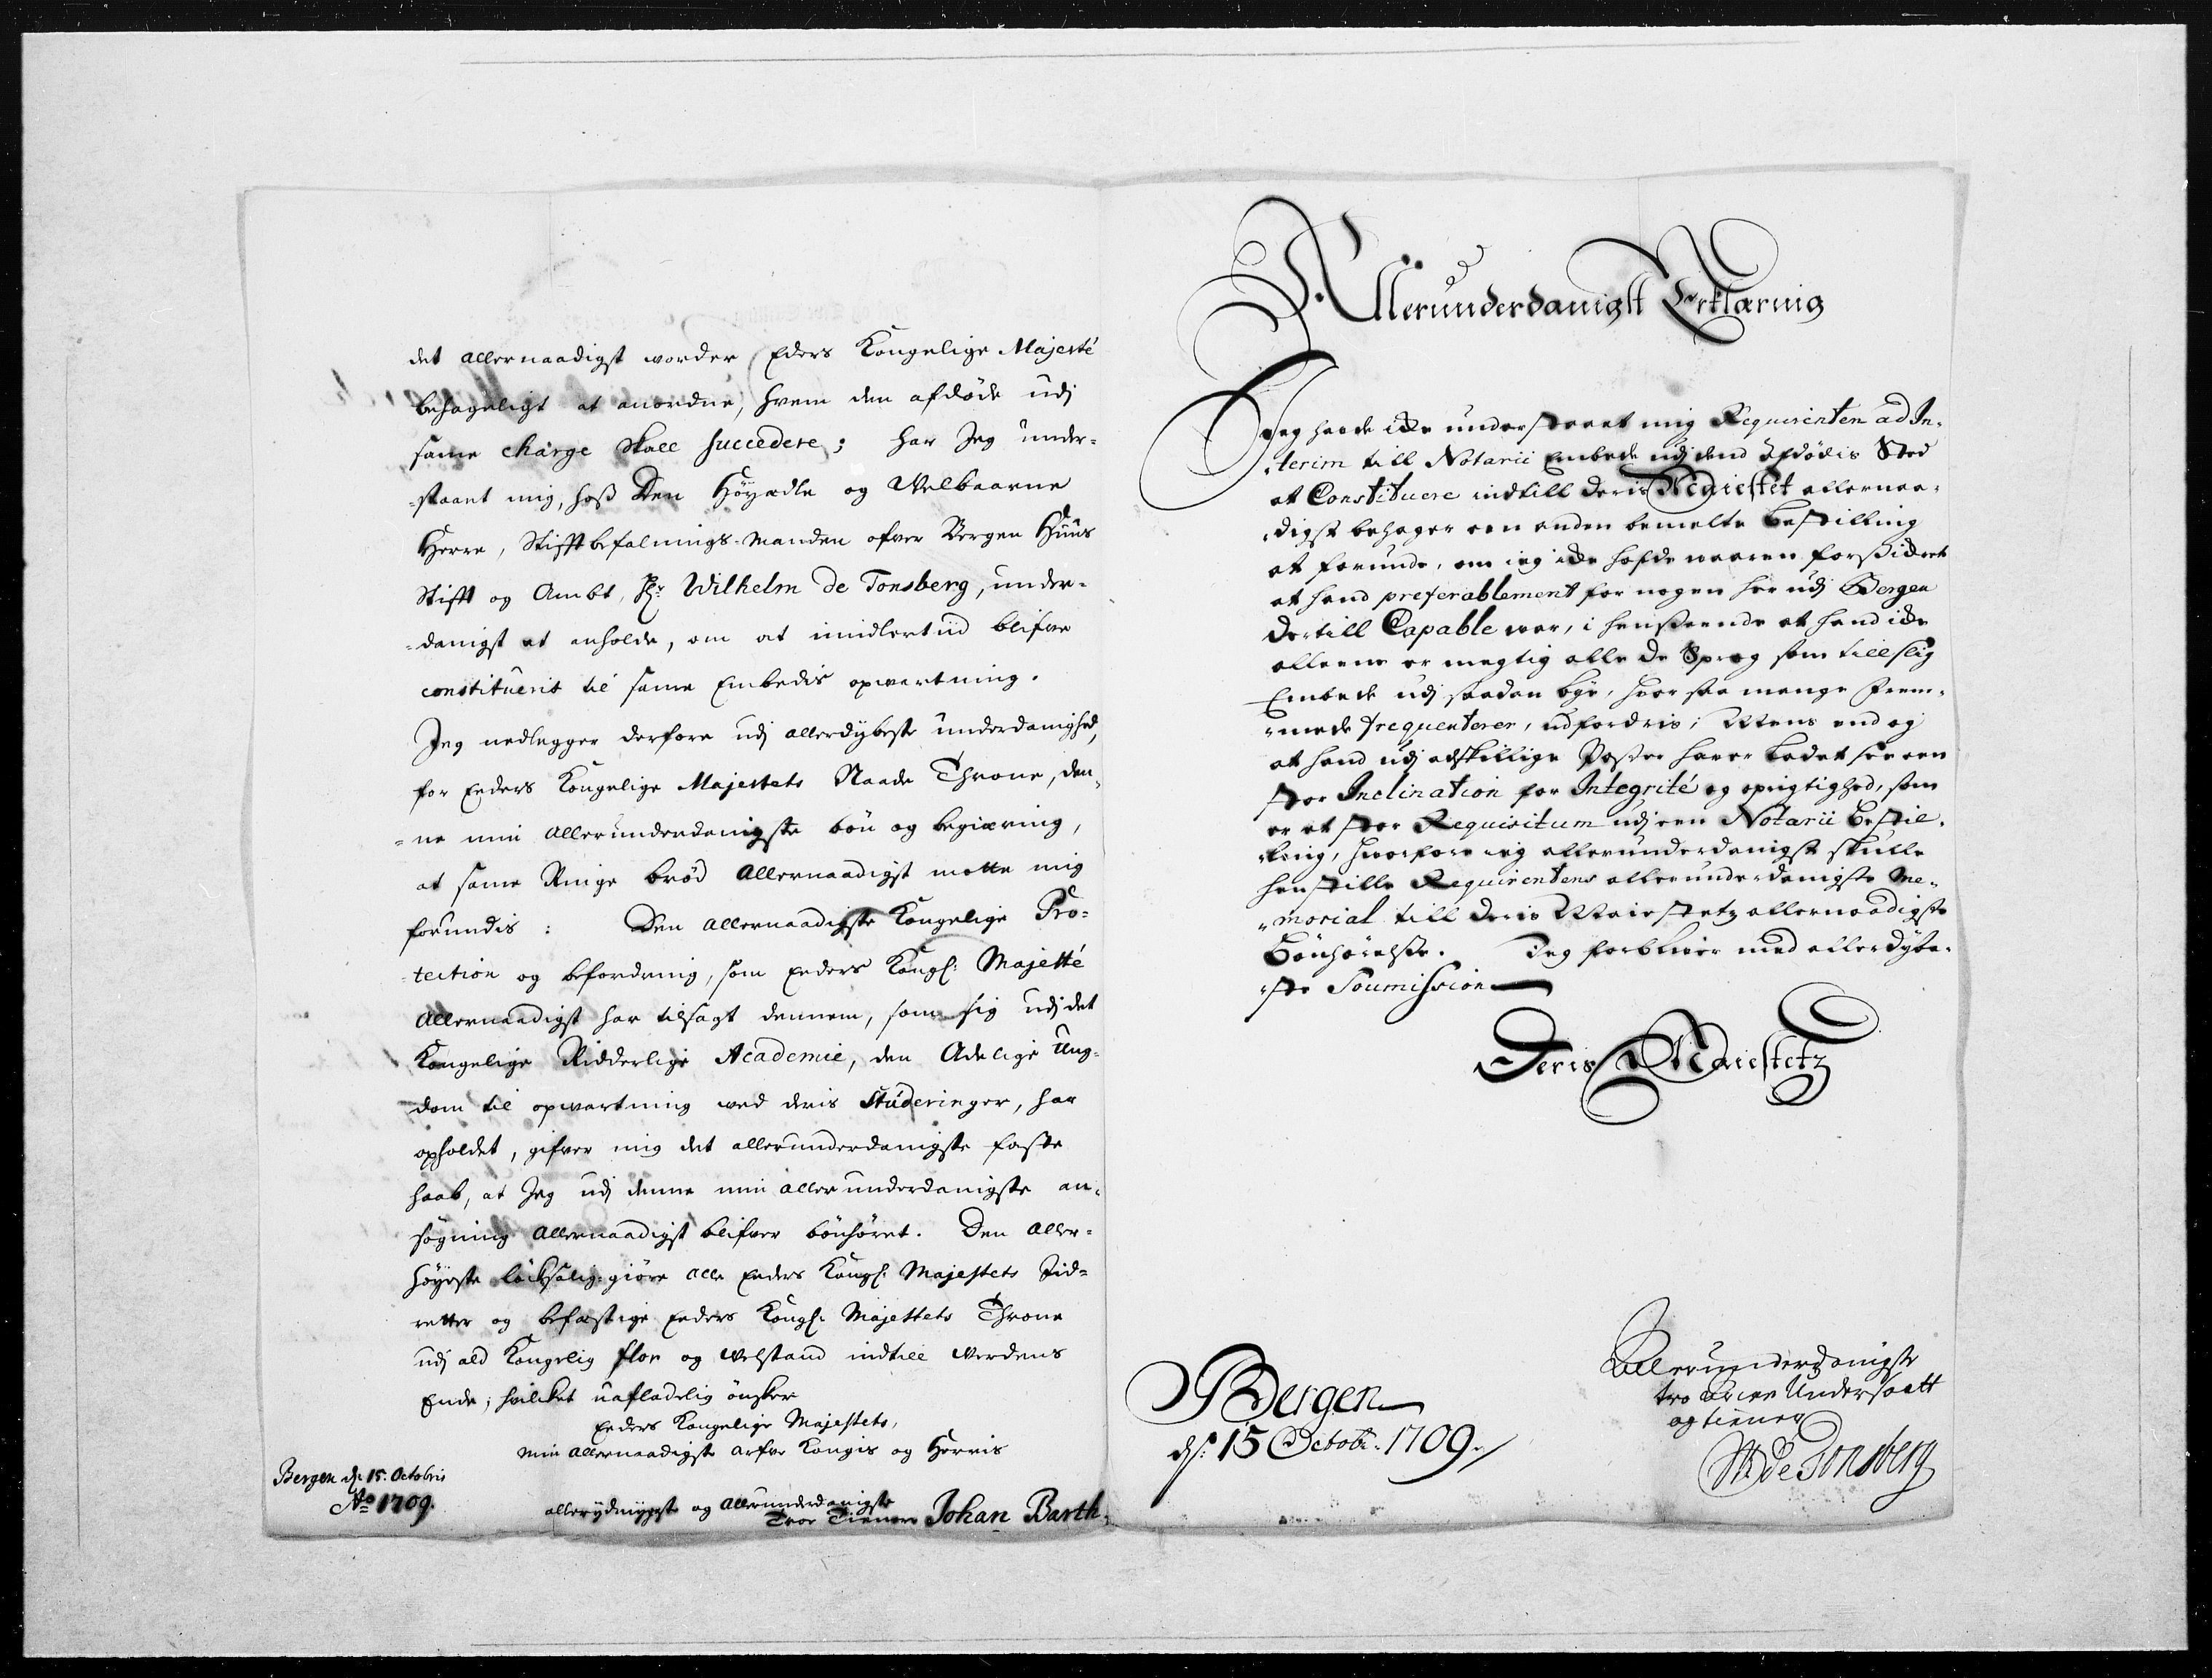 det allernaadigst vorder Eders Kongelige Majesté
behageligt at anordne, hvem den afdöde udj
same charge skall succedere; har Jeg under-
-staaet mig, hoss Den Höyædle og Velbaarne
Herre, Stifftbefalnings-Manden ofver Bergen Huus
Stifft og Ambt, Hr: Wilhelm de Tonsberg, under-
-danigst at anholde, om at imidlertiid blifve
constituerit til same Embedis opvartning.
Jeg nedlegger derfore udj allerdybeste underdanighed,
for Eeders Kongelige Majestets Naade Throne, den-
-ne min allerunderdanigste bön og begiæring,
at same Ringe bröd Allernaadigst motte mig
forundis: Den allernaadigste Kongelige Pro-
tection og befordring, som Eeders Kongl: Majesté
Allernaadigst har tilsagt dennem, som sig udj det
Kongelige Ridderlige Academie, den Adelige Ung-
dom til opvartning ved deris Studeringer, har
opholdet, gifver mig det allerunderdanigste faste
haab, at Jeg udj denne min allerunderdanigste an-
søgning Allernaadigst blifver bönhöret. Den Aller-
höyeste löcksalig-giöre alle Eeders Kongl: Majestets Jid-
retter og befæstige Eeders Kongl: Majestets Throne
udj ald Kongelig flor og Velstand indtill Verdens
Ende; hvilcket uafladelig önsker
Eeders Kongelige Majestets,
min allernaadigste Arfve Kongis og Herris
Bergen dn 15. Octobris
Ao 1709.
allerydmygste og Allerunderdanigste
Troe Tienere Johan Barth.
Allerunderdanigst Erklærnig
Jeg hafde icke understaaet mig Requirenten ad In-
-terim till Notarii Embede udj dend Afdödis Sted
at Constituere indtill Deris Majestet allernaa-
-digst behager een anden bemelte Bestilling
at forunde, om ieg icke hafde vaaren forsickret
at hand preferablement for nogen her udj Bergen
dertill Capable var, i henseende at hand icke
alleene er megtig alle de Sprog som till slig
Embede udj saadan bye, hvor saa mange Frem-
-mede frequenterer, udfordris; Mens end og
at hand udj adskillige Poster haver ladet see een
stor Inclination for Integrité og oprigtighed, som
er et stor Requisitum udj een Notarii Bestil-
-ling, hvorfore ieg allerunderdanigst skulle
henstille Requirentens allerunderdanigste Me-
-morial till Deris Maiestetz allernaadigste
Bönhörelse. Jeg forbliver med allerdybe-
-ste Soumission
Deris Maiestetz
Bergen
dn: 15 Octobr: 1709.
Allerunderdanigste
tro Arfve Undersaatt
og tienner
W de Tonsberg